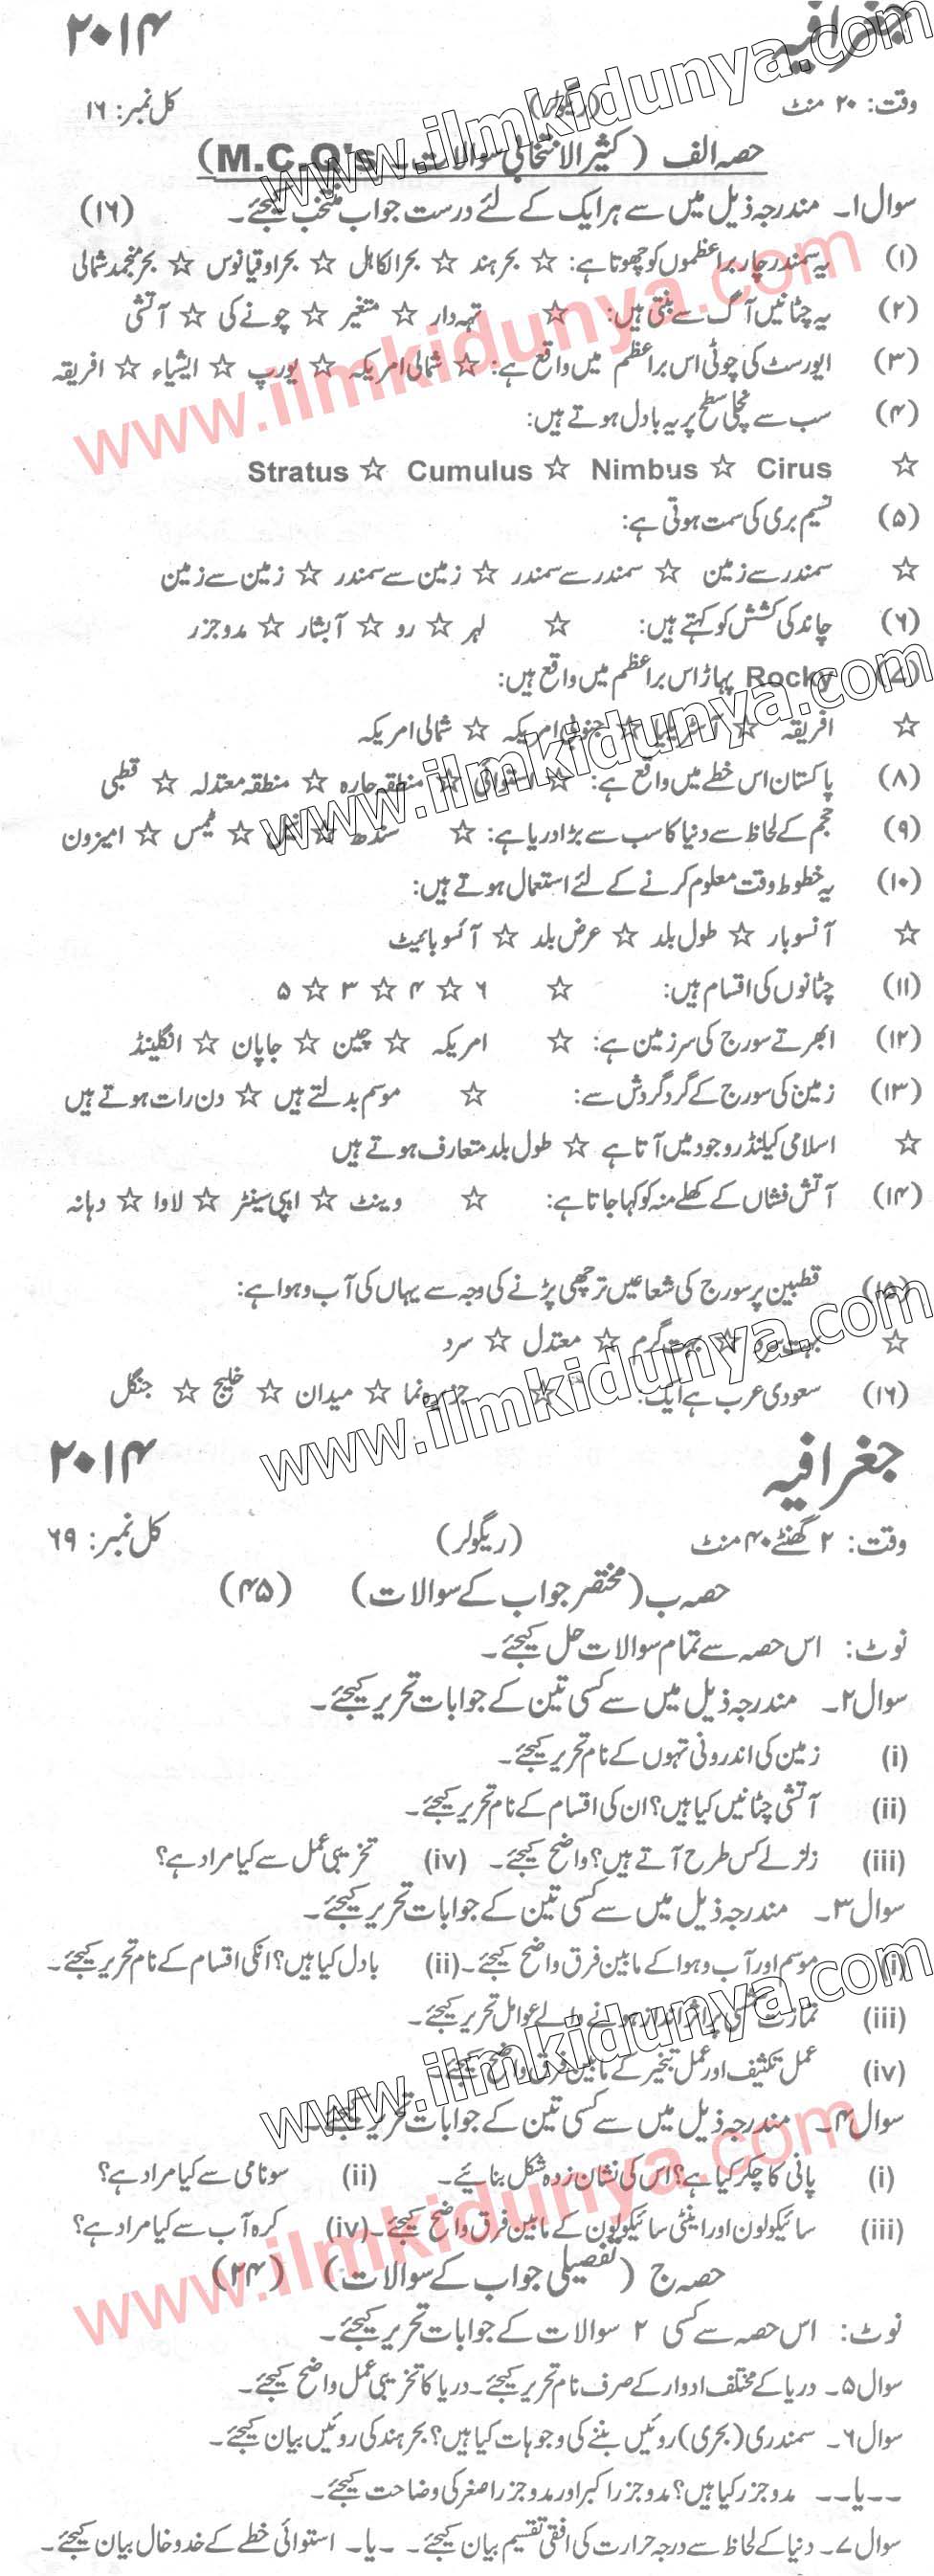 جغرافیہ ۲۰۱۴
وقت: ۲۰ منٹ (ریگولر) کل نمبر: ۱۶
حصہ الف (کثیر الانتخابی سوالات۔ M.C.Q's)
سوال۱۔ مندرجہ ذیل میں سے ہر ایک کے لئے درست جواب منتخب کیجئے۔ (۱۶)
(۱) یہ سمندر چار براعظموں کو چھوتا ہے: ☆ بحر ہند ☆ بحر الکاہل ☆ بحر اوقیانوس ☆ بحر منجمد شمالی
(۲) یہ چٹانیں آگ سے بنتی ہیں: ☆ تہہ دار ☆ متغیر ☆ چونے کی ☆ آتشی
(۳) ایورسٹ کی چوٹی اس براعظم میں واقع ہے: ☆ شمالی امریکہ ☆ یورپ ☆ ایشیاء ☆ افریقہ
(۴) سب سے نچلی سطح پر یہ بادل ہوتے ہیں:
☆ Cirus ☆ Nimbus ☆ Cumulus ☆ Stratus
(۵) نسیم بری کی سمت ہوتی ہے:
☆ سمندر سے زمین ☆ سمندر سے سمندر ☆ زمین سے سمندر ☆ زمین سے زمین
(۶) چاند کی کشش کو کہتے ہیں: ☆ لہر ☆ رو ☆ آبشار ☆ مدوجزر
(۷) Rocky پہاڑ اس براعظم میں واقع ہیں:
☆ افریقہ ☆ آسٹریلیا ☆ جنوبی امریکہ ☆ شمالی امریکہ
(۸) پاکستان اس خطے میں واقع ہے: ☆ استوائی ☆ منطقہ حارہ ☆ منطقہ معتدلہ ☆ قطبی
(۹) حجم کے لحاظ سے دنیا کا سب سے بڑا دریا ہے: ☆ سندھ ☆ نیل ☆ ٹیمس ☆ امیزون
(۱۰) یہ خطوط وقت معلوم کرنے کے لئے استعمال ہوتے ہیں:
☆ آنسوبار ☆ طول بلد ☆ عرض بلد ☆ آئسو ہائیٹ
(۱۱) چٹانوں کی اقسام ہیں: ☆ ۶ ☆ ۴ ☆ ۳ ☆ ۵
(۱۲) ابھرتے سورج کی سرزمین ہے: ☆ امریکہ ☆ چین ☆ جاپان ☆ انگلینڈ
(۱۳) زمین کی سورج کے گرد گردش سے: ☆ موسم بدلتے ہیں ☆ دن رات ہوتے ہیں
☆ اسلامی کیلنڈر وجود میں آتا ہے ☆ طول بلد متعارف ہوتے ہیں
(۱۴) آتش فشاں کے کھلے منہ کو کہا جاتا ہے: ☆ وینٹ ☆ ایپی سینٹر ☆ لاوا ☆ دہانہ
(۱۵) قطبین پر سورج کی شعاعیں ترچھی پڑنے کی وجہ سے یہاں کی آب و ہوا ہے:
☆ بہت سرد ☆ بہت گرم ☆ معتدل ☆ سرد
(۱۶) سعودی عرب ہے ایک: ☆ جزیرہ نما ☆ میدان ☆ خلیج ☆ جنگل
جغرافیہ ۲۰۱۴
وقت: ۲ گھنٹے ۴۰ منٹ (ریگولر) کل نمبر: ۶۹
حصہ ب (مختصر جواب کے سوالات) (۴۵)
نوٹ: اس حصہ سے تمام سوالات حل کیجئے۔
سوال۲۔ مندرجہ ذیل میں سے کسی تین کے جوابات تحریر کیجئے۔
(i) زمین کی اندرونی تہوں کے نام تحریر کیجئے۔
(ii) آتشی چٹانیں کیا ہیں؟ ان کی اقسام کے نام تحریر کیجئے۔
(iii) زلزلے کس طرح آتے ہیں؟ واضح کیجئے۔ (iv) تخریبی عمل سے کیا مراد ہے؟
سوال۳۔ مندرجہ ذیل میں سے کسی تین کے جوابات تحریر کیجئے۔
(i) موسم اور آب و ہوا کے مابین فرق واضح کیجئے۔ (ii) بادل کیا ہیں؟ انکی اقسام کے نام تحریر کیجئے۔
(iii) تمازت شمسی پر اثر انداز ہونے والے عوامل تحریر کیجئے۔
(iv) عمل تکثیف اور عمل تبخیر کے مابین فرق واضح کیجئے۔
سوال۴۔ مندرجہ ذیل میں سے کسی تین کے جوابات تحریر کیجئے۔
(i) پانی کا چکر کیا ہے؟ اس کی نشان زدہ شکل بنائیے۔ (ii) سونامی سے کیا مراد ہے؟
(iii) سائیکلون اور اینٹی سائیکلون کے مابین فرق واضح کیجئے۔ (iv) کرہ آب سے کیا مراد ہے؟
حصہ ج (تفصیلی جواب کے سوالات) (۲۴)
نوٹ: اس حصہ سے کسی ۲ سوالات کے جوابات تحریر کیجئے۔
سوال۵۔ دریا کے مختلف ادوار کے صرف نام تحریر کیجئے۔ دریا کا تخریبی عمل واضح کیجئے۔
سوال۶۔ سمندری (بحری) روئیں بننے کی وجوہات کیا ہیں؟ بحر ہند کی روئیں بیان کیجئے۔
--یا-- مدوجزر کیا ہیں؟ مدوجزر اکبر اور مدوجزر اصغر کی وضاحت کیجئے۔
سوال۷۔ دنیا کے لحاظ سے درجہ حرارت کی افقی تقسیم بیان کیجئے۔ -یا- استوائی خطے کے خدوخال بیان کیجئے۔
www.ilmkidunya.com
www.ilmkidunya.com
www.ilmkidunya.com
www.ilmkidunya.com
www.ilmkidunya.com
www.ilmkidunya.com